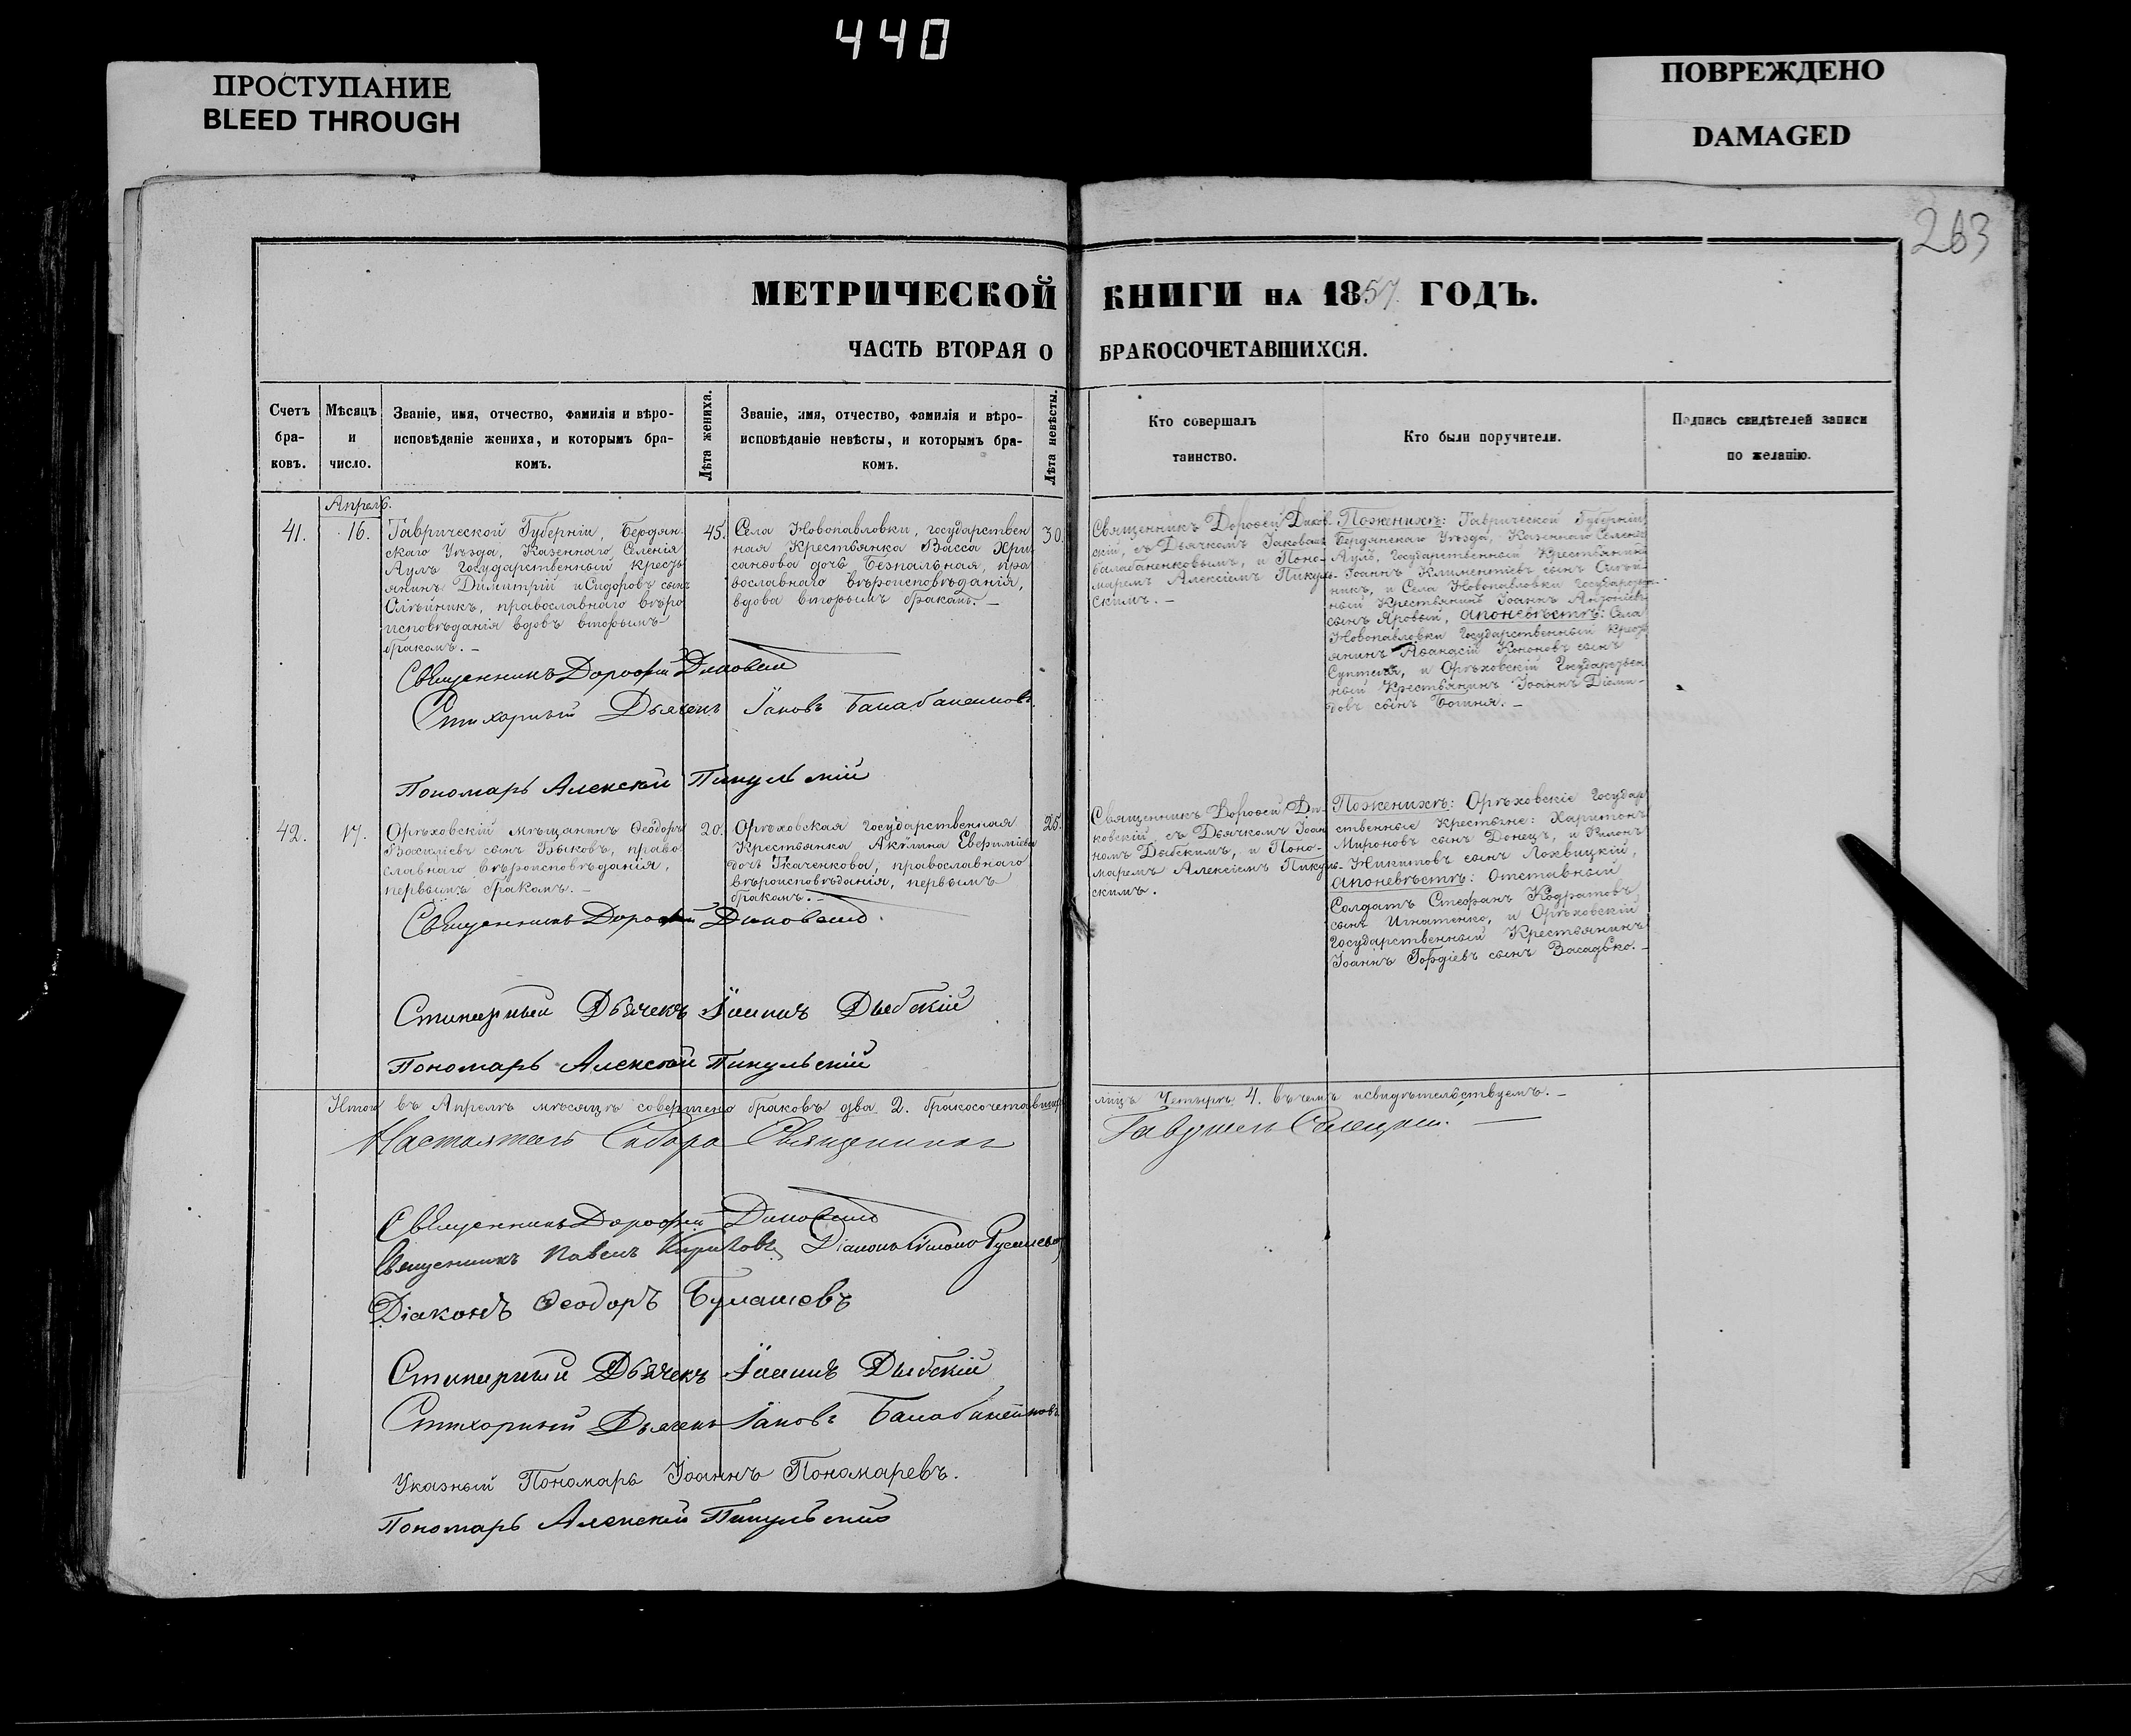 440
ПРОСТУПАНИЕ
BLEED THROUGH
ПОВРЕЖДЕНО
DAMAGED
263
МЕТРИЧЕСКОЙ КНИГИ НА 1857 ГОДЪ.
ЧАСТЬ ВТОРАЯ О БРАКОСОЧЕТАВШИХСЯ.
Счетъ
бра-
ковъ.
Мѣсяцъ
и
число.
Званіе, имя, отчество, фамилія и вѣро-
исповѣданіе жениха, и которымъ бра-
комъ.
Лѣта жениха.
Званіе, имя, отчество, фамилія и вѣро-
исповѣданіе невѣсты, и которымъ бра-
комъ.
Лѣта невѣсты.
Кто совершалъ
таинство.
Кто были поручители.
Подпись свидѣтелей записи
по желанію.
Апрель.
41.
16.
Таврической Губерніи, Бердян-
скаго Уѣзда, Казеннаго Селенія
Аулъ Государственный Кресть
янинъ Димитрій Сидоровъ сынъ
Олѣйникъ, православнаго вѣро
исповѣданія вдовъ вторымъ
бракомъ. –
45.
Села Новопавловки, государствен
ная Крестьянка Васса Хри
санфова дочь Безпальная, пра
вославнаго вѣроисповѣданія,
вдова вторымъ бракомъ. –
30.
Священникъ Дорофей Диков-
скій, съ Дьячкомъ Іаковомъ
Балабаненковымъ, и Поно-
маремъ Алексіемъ Пикуль-
скимъ. –
По женихѣ: Таврической Губерніи
Бердянскаго Уѣзда, Казеннаго Селенія
Аулъ, Государственный Крестьянинъ
Іоаннъ Климентіевъ сынъ Олѣй-
никъ, и Села Новопавловки Государствен-
ный Крестьянинъ Іоаннъ Антоніевъ
сынъ Яровый, а по невѣстѣ: Села
Новопавловки Государственный Кресть
янинъ Аѳанасій Кононовъ сынъ
и Орѣховскій Государствен
ный Крестьянинъ Іоаннъ Діоми-
довъ сынъ
Священникъ Дорофей Диковскій
Стихарный Дьячекъ Іаковъ Балабаненковъ
Пономарь Алексѣй Пикульскій
42.
17.
Орѣховскій мѣщанинъ Ѳеодоръ
Василіевъ сынъ Быковъ, право
славнаго вѣроисповѣданія,
первымъ бракомъ. –
20.
Орѣховская Государственная
Крестьянка Акилина
дочь Ткаченкова, православнаго
вѣроисповѣданія, первымъ
бракомъ. –
25.
Священникъ Дорофей Ди-
ковскій, съ Дьячкомъ Іоан
номъ Дыбскимъ, и Поно-
маремъ Алексіемъ Пикуль-
скимъ.
По женихѣ: Орѣховскіе Государ
ственные Крестьяне: Харитонъ
Мироновъ сынъ Донецъ, и Филонъ
Никитовъ сынъ Лохвицкій,
а по невѣстѣ: Отставный
Солдатъ Стефанъ Кодратовъ
сынъ Игнатенко, и Орѣховскій
Государственный Крестьянинъ
Іоаннъ Гордіевъ сынъ Засадько. –
Священникъ Дорофей Диковскій
Стихарный Дьячекъ Іоаннъ Дыбскій
Пономарь Алексѣй Пикульскій
Итого въ Апрелѣ мѣсяцѣ совершено браковъ два 2. бракосочетавшихся
лицъ Четыре 4. въ чемъ и свидѣтельствуемъ. –
Настоятель Собора Священникъ Гавріилъ
Священникъ Дорофей Диковскій
Священникъ Павелъ Діаконъ
Діаконъ Ѳеодоръ
Стихарный Дьячекъ Іоаннъ Дыбскій
Стихарный Дьячекъ Іаковъ Балабаненковъ
Указный Пономарь Іоаннъ Пономаревъ.
Пономарь Алексѣй Пикульскій